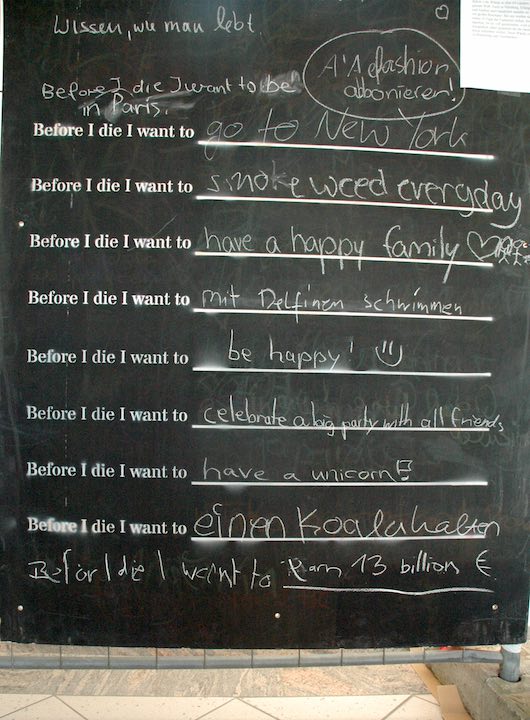 Wissen, wie man lebt.
A'A fashion
abonieren!
Before I die I want to be
in Paris.
Before I die I want to go to New York
Before I die I want to smoke weed everyday
Before I die I want to have a happy family
Before I die I want to mit Delfinen schwimmen
Before I die I want to be happy!
Before I die I want to celebrate a big party with all friends
Before I die I want to have a unicorn!
Before I die I want to einen Koala halten
Befor I die I want to earn 13 billion €